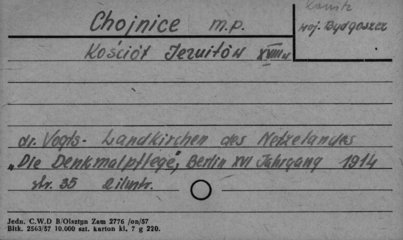 Konitz
Chojnice m.p.
woj. Bydgoszcz
Kościół Jezuitów XVIII w
dr. Vogts - Landkirchen des Netzelandes
„Die Denkmalpflege”, Berlin XVI Jahrgang 1914
str. 35 2 ilustr.
Jedn. C.W.D B/Olsztyn Zam 2776 /on/57
Bltk. 2563/57 10.000 szt. karton kl. 7 g 220.